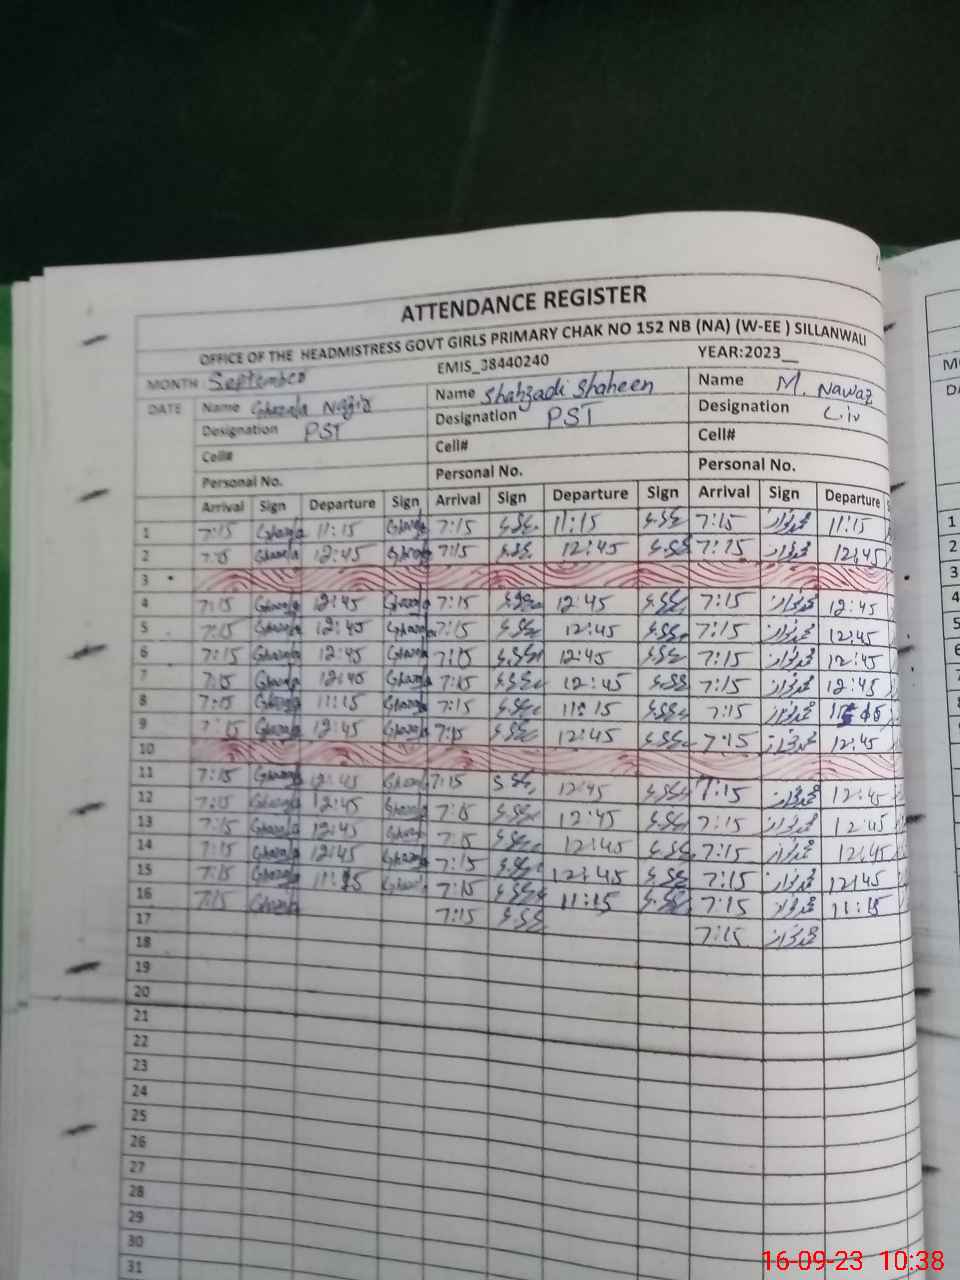 ATTENDANCE REGISTER
OFFICE OF THE HEADMISTRESS GOVT GIRLS PRIMARY CHAK NO 152 NB (NA) (W-EE ) SILLANWALI
MONTH : September EMIS_38440240 YEAR:2023__
DATE Name Ghazala Nazir Name Shahzadi Shaheen Name M. Nawaz
Designation PST Designation PST Designation
Cell# Cell# Cell#
Personal No. Personal No. Personal No.
Arrival Sign Departure Sign Arrival Sign Departure Sign Arrival Sign Departure
1 7:15 Ghazala 11:15 Ghazala 7:15 11:15 7:15 محمدنواز 11:15
2 7:15 Ghazala 12:45 Ghazala 7:15 12:45 7:15 محمدنواز 12:45
3
4 7:15 Ghazala 12:45 Ghazala 7:15 12:45 7:15 محمدنواز 12:45
5 7:15 Ghazala 12:45 Ghazala 7:15 12:45 7:15 محمدنواز 12:45
6 7:15 Ghazala 12:45 Ghazala 7:15 12:45 7:15 محمدنواز 12:45
7 7:15 Ghazala 12:45 Ghazala 7:15 12:45 7:15 محمدنواز 12:45
8 7:15 Ghazala 11:15 Ghazala 7:15 11:15 7:15 محمدنواز
9 7:15 Ghazala 12:45 Ghazala 7:15 12:45 7:15 محمدنواز 12:45
10
11 7:15 Ghazala 12:45 Ghazala 7:15 12:45 7:15 محمدنواز 12:45
12 7:15 Ghazala 12:45 Ghazala 7:15 12:45 7:15 محمدنواز 12:45
13 7:15 Ghazala 12:45 Ghazala 7:15 12:45 7:15 محمدنواز 12:45
14 7:15 Ghazala 12:45 Ghazala 7:15 12:45 7:15 محمدنواز 12:45
15 7:15 Ghazala 11:15 Ghazala 7:15 11:15 7:15 محمدنواز 11:15
16 7:15 Ghazala 7:15 7:15 محمدنواز
17
18
19
20
21
22
23
24
25
26
27
28
29
30
31
16-09-23 10:38